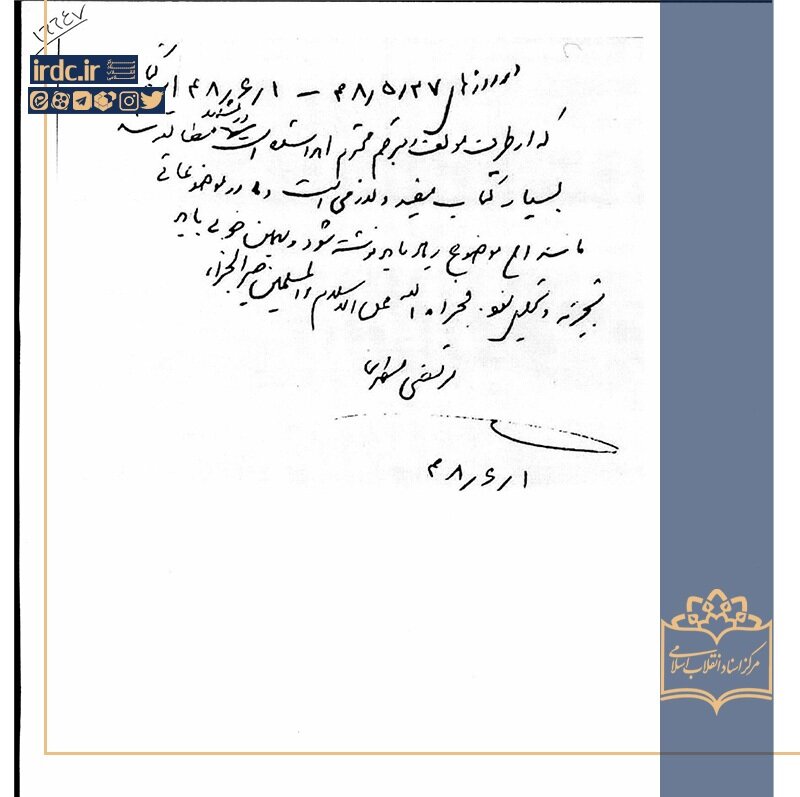 ۱۶۶۴۷
irdc.ir
در روزهای ۴۸٫۵٫۲۷ — ۴۸٫۶٫۱ این کتاب
که از طرف مؤلف و مترجم محترم اهدا شده است مطالعه شد
بسیار کتاب مفید و لازمی است و در موضوعاتی
مانند این موضوع زیاد باید نوشته شود و همین خوبی باید
تجزیه و تحلیل شود. فجزاه الله عن الاسلام والمسلمین خیر الجزاء
مرتضی مطهری
۴۸٫۶٫۱
مرکز اسناد انقلاب اسلامی